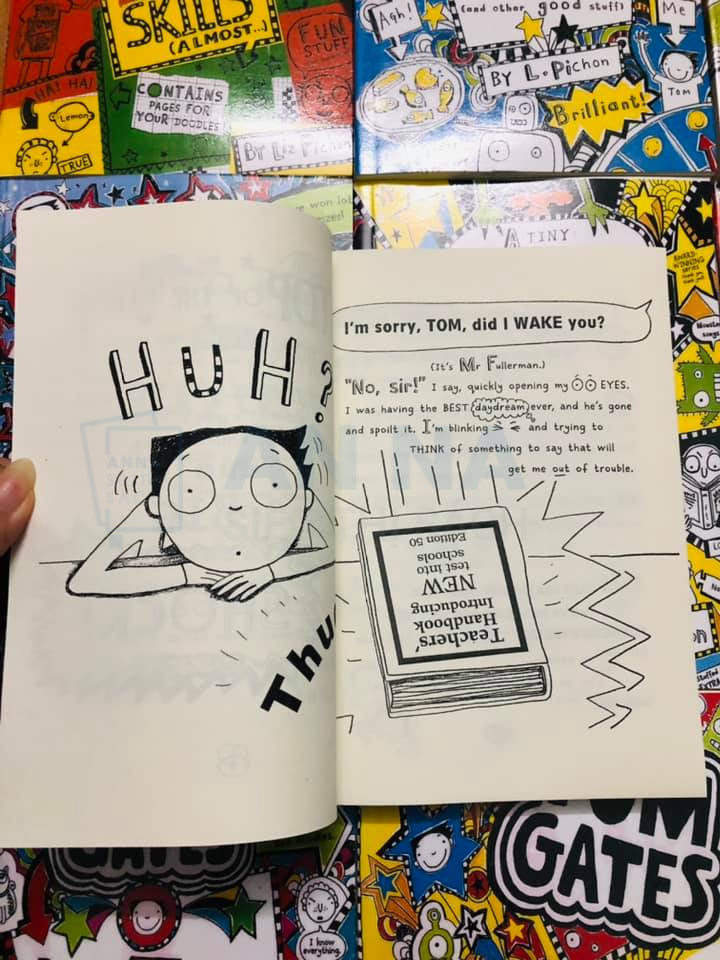 SKILLS
(ALMOST...)
FUN
STUFF
HA! HA!
CONTAINS
PAGES FOR
YOUR DOODLES
Lemon
TRUE
BY Liz Pichon
Agh!
(and other good stuff)
Me
BY L. Pichon
Tom
Brilliant!
A TINY
AWARD-
WINNING
SERIES
HUH?
I'm sorry, TOM, did I WAKE you?
(It's Mr Fullerman.)
"No, sir!" I say, quickly opening my EYES.
I was having the BEST daydream ever, and he's gone
and spoilt it. I'm blinking and trying to
THINK of something to say that will
get me out of trouble.
Thu
Teachers'
Handbook
Introducing
NEW
test into
schools
Edition 50
GATES
GATES
I know
everything.